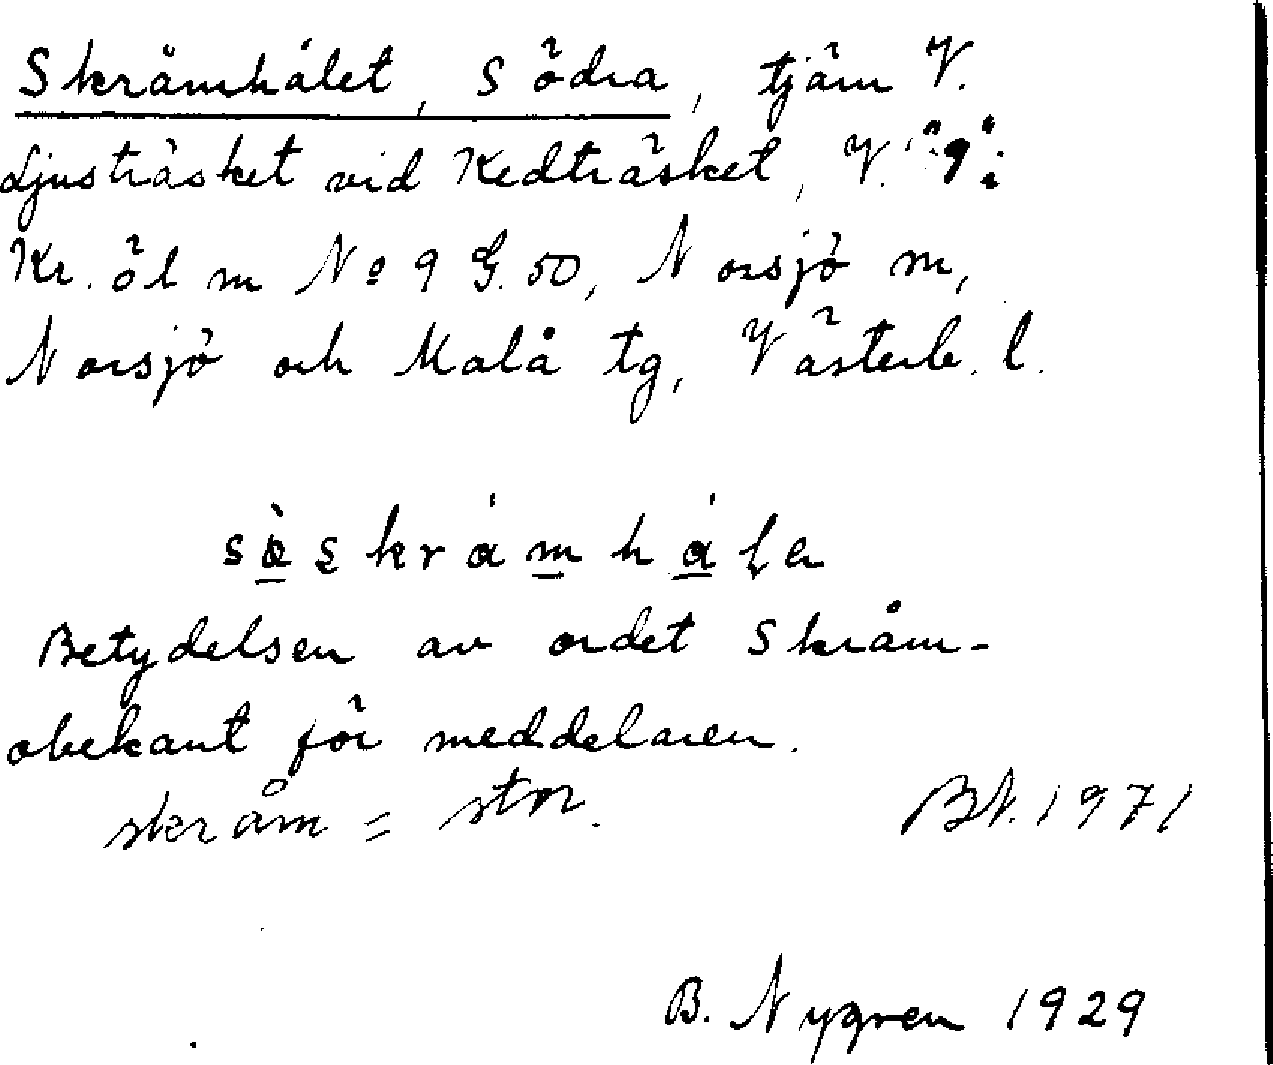 Skråmhålet, Södra, tjärn V.
Ljusträsket vid Kedträsket, V.
Kr. öl m No 9 G. 50, Norsjö m,
Norsjö och Malå tg, Västerb. l.
Betydelsen av ordet Skråm-
obekant för meddelaren.
skråm = stor. BN. 1971
B. Nygren 1929